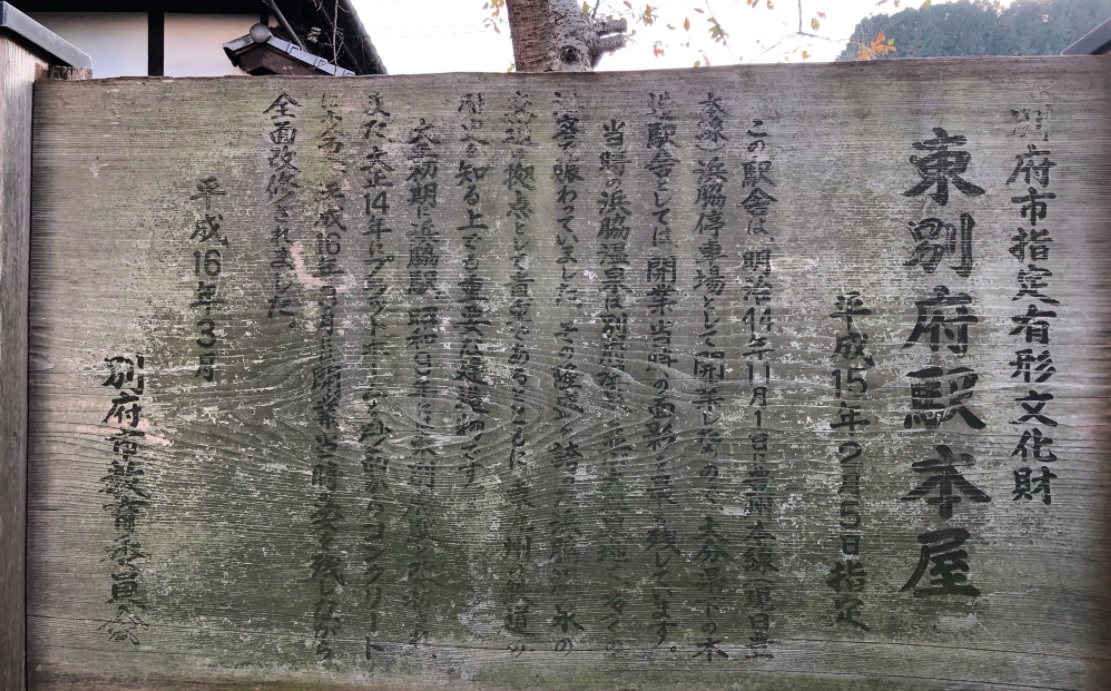 別府市指定有形文化財
東別府駅本屋
平成15年2月5日指定
この駅舎は、明治44年11月1日豊州本線(現日豊
本線)浜脇停車場として開業したもので、大分県下の木
造駅舎としては、開業当時の面影を良く残しています。
当時の浜脇温泉は別府
客で賑わっていました。その隆盛を誇った浜脇温泉の
拠点として貴重であるとともに東九州の鉄道の
歴史を知る上でも重要な建造物です
初期に浜脇駅、昭和9年に東別府駅と改称され、
また大正14年にプラットホームを砂利敷からコンクリート
平成16年3月に開業当時の姿を残しながら
全面改修されました。
平成16年3月
別府市教育委員会